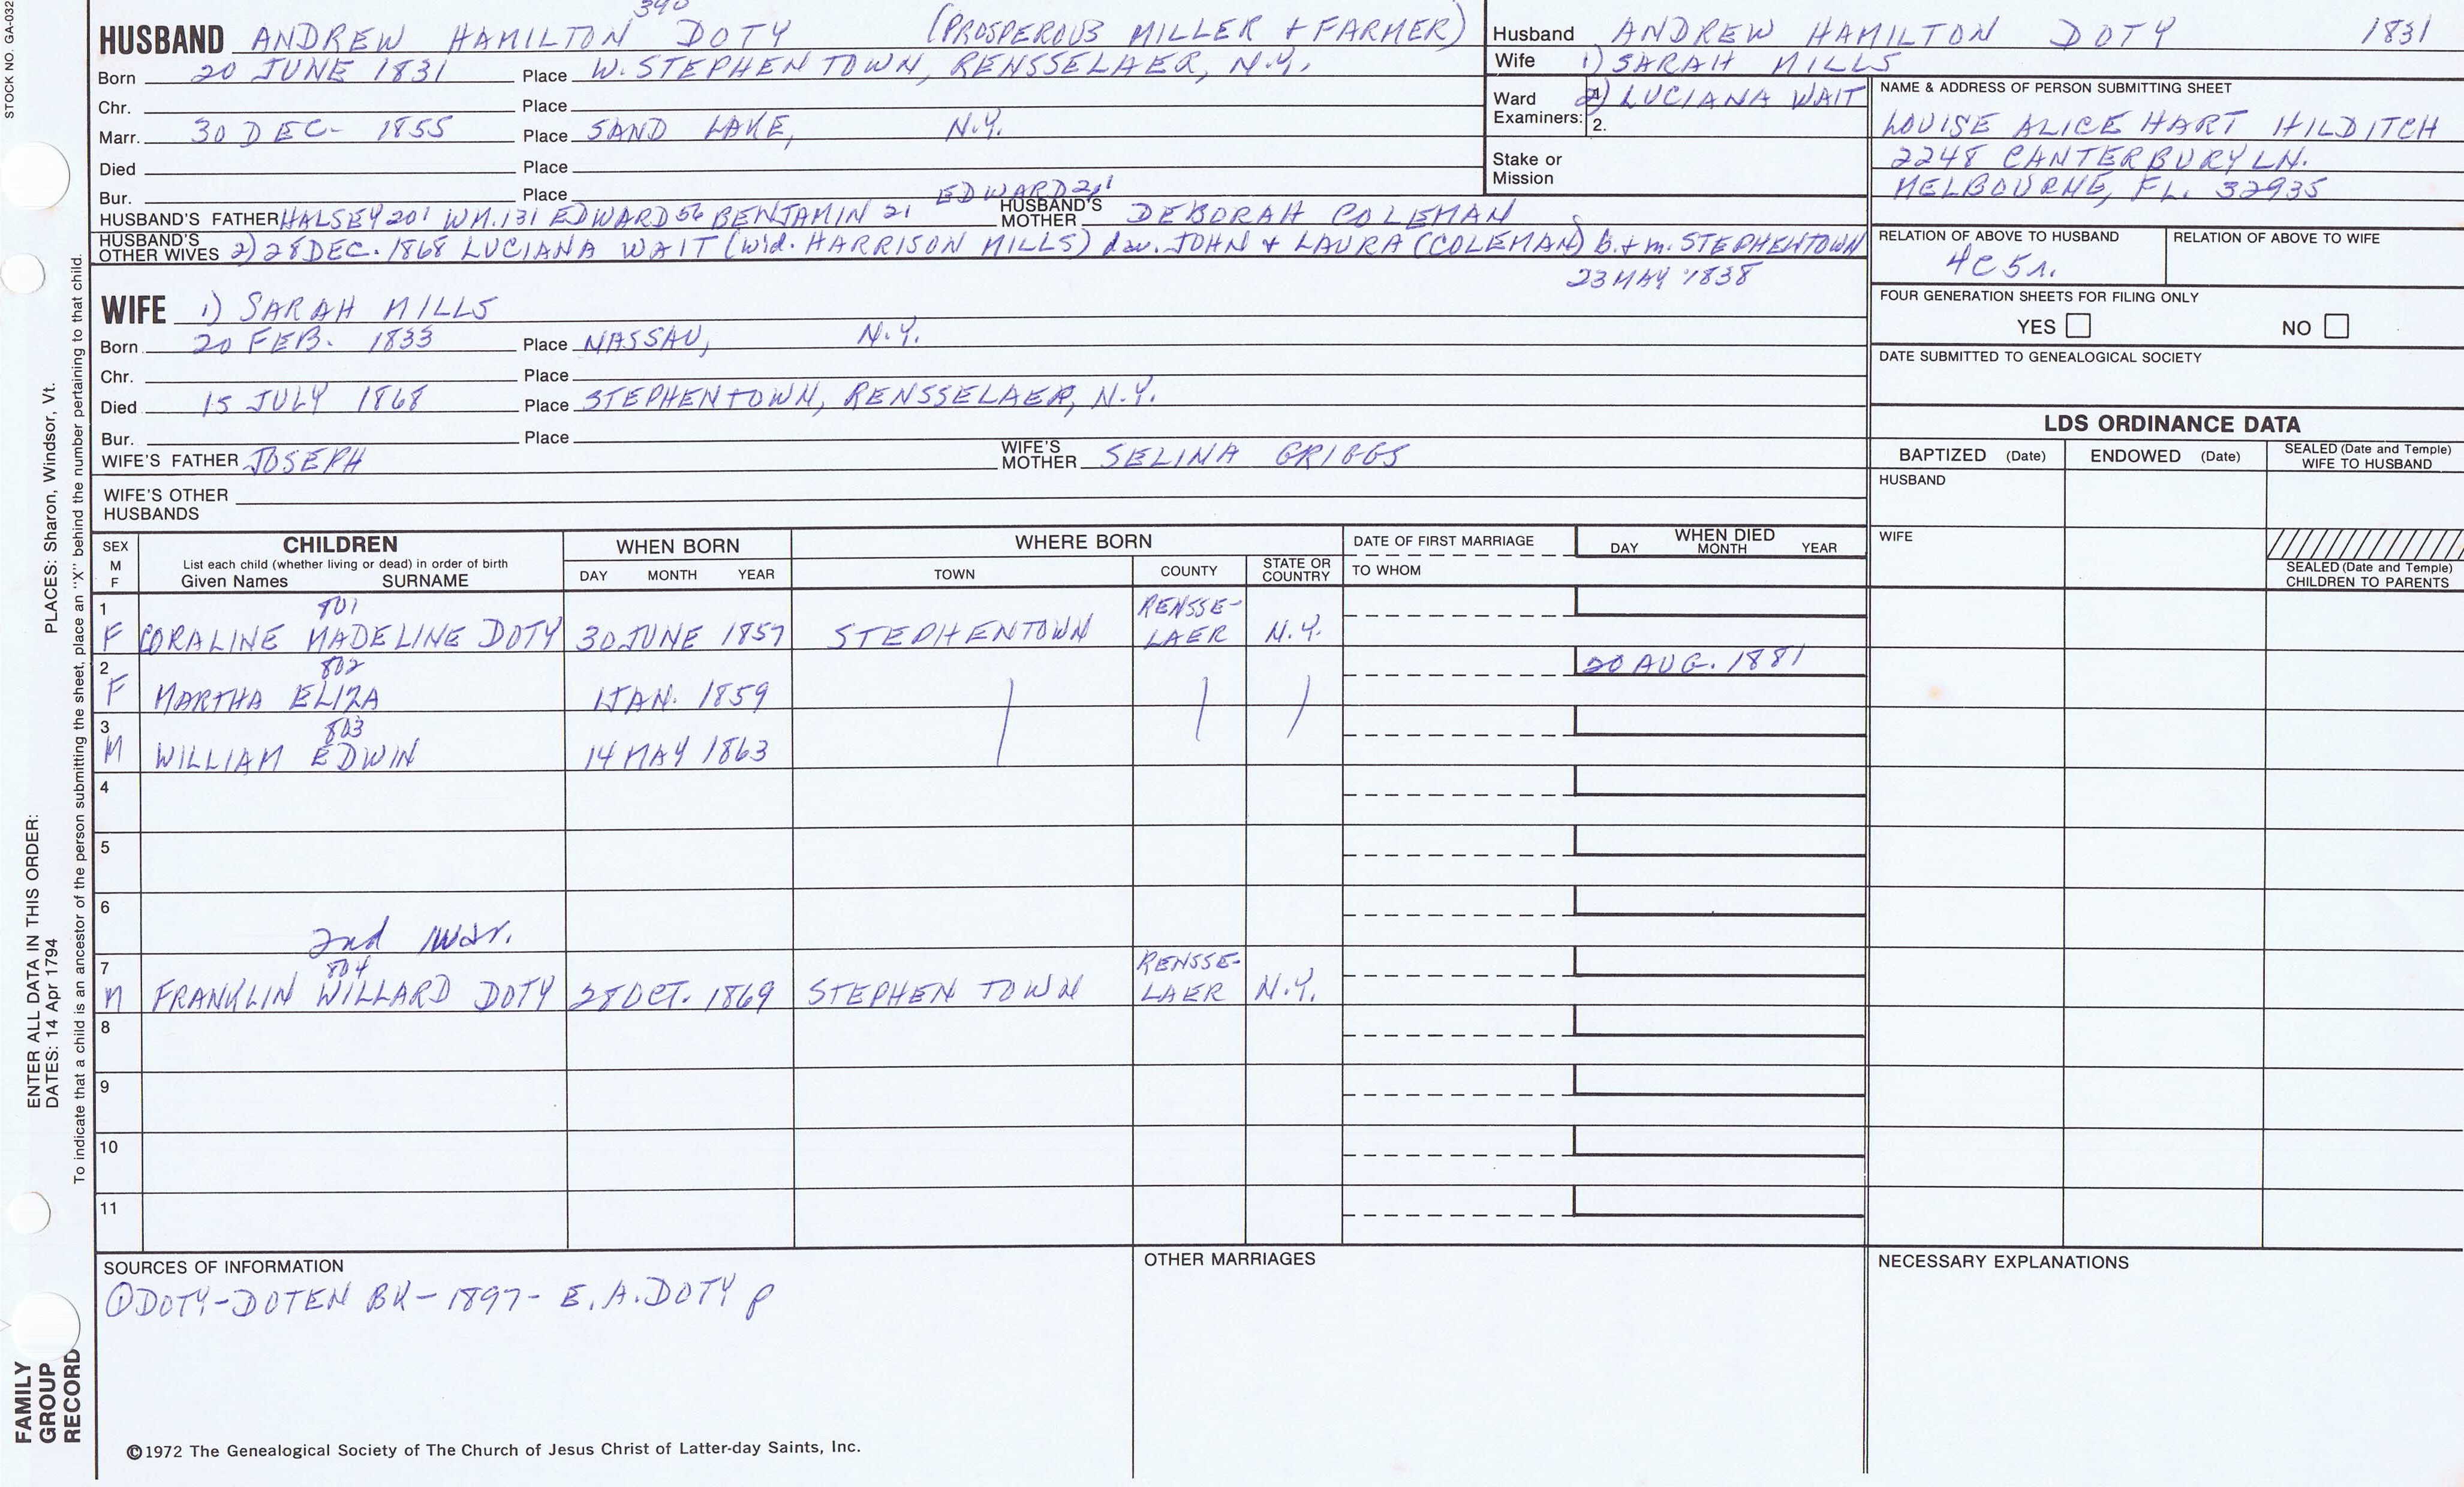 STOCK NO. GA-032
390
HUSBAND ANDREW HAMILTON DOTY (PROSPEROUS MILLER + FARMER)
Born 20 JUNE 1831 Place W. STEPHEN TOWN, RENSSELAER, N.Y.
Chr. Place
Marr. 30 DEC- 1855 Place SAND LAKE, N.Y.
Died Place
Bur. Place
EDWARD 2,1
HUSBAND'S FATHER HALSEY 201 WM. 131 EDWARD 56 BENJAMIN 21 HUSBAND'S MOTHER DEBORAH COLEMAN
HUSBAND'S OTHER WIVES 2) 28 DEC. 1868 LUCIANA WAIT (wid. HARRISON MILLS) dau. JOHN + LAURA (COLEMAN) b. + m. STEPHENTOWN
23 MAY 1838
WIFE 1) SARAH MILLS
Born 20 FEB. 1833 Place NASSAU, N.Y.
Chr. Place
Died 15 JULY 1868 Place STEPHENTOWN, RENSSELAER, N.Y.
Bur. Place
WIFE'S FATHER JOSEPH WIFE'S MOTHER SELINA GRIGGS
WIFE'S OTHER HUSBANDS
Husband ANDREW HAMILTON DOTY 1831
Wife 1) SARAH MILLS
Ward Examiners: 1. 2) LUCIANA WAIT
2.
Stake or Mission
NAME & ADDRESS OF PERSON SUBMITTING SHEET
LOUISE ALICE HART HILDITCH
2248 CANTERBURY LN.
MELBOURNE, FL. 32935
RELATION OF ABOVE TO HUSBAND RELATION OF ABOVE TO WIFE
4C5r.
FOUR GENERATION SHEETS FOR FILING ONLY
YES NO
DATE SUBMITTED TO GENEALOGICAL SOCIETY
LDS ORDINANCE DATA
BAPTIZED (Date) ENDOWED (Date) SEALED (Date and Temple) WIFE TO HUSBAND
HUSBAND
WIFE
SEALED (Date and Temple) CHILDREN TO PARENTS
SEX M F CHILDREN WHEN BORN WHERE BORN DATE OF FIRST MARRIAGE WHEN DIED
List each child (whether living or dead) in order of birth
Given Names SURNAME DAY MONTH YEAR TOWN COUNTY STATE OR COUNTRY TO WHOM DAY MONTH YEAR
1 801 RENSSE-
F CORALINE MADELINE DOTY 30 JUNE 1857 STEPHENTOWN LAER N.Y.
2 802 20 AUG. 1881
F MARTHA ELIZA 1 JAN. 1859
3 803
M WILLIAM EDWIN 14 MAY 1863
4
5
6
2nd Mar.
7 804 RENSSE-
M FRANKLIN WILLARD DOTY 28 OCT. 1869 STEPHEN TOWN LAER N.Y.
8
9
10
11
SOURCES OF INFORMATION OTHER MARRIAGES NECESSARY EXPLANATIONS
① DOTY-DOTEN BK - 1897 - E. A. DOTY p
©1972 The Genealogical Society of The Church of Jesus Christ of Latter-day Saints, Inc.
FAMILY GROUP RECORD
ENTER ALL DATA IN THIS ORDER:
DATES: 14 Apr 1794 PLACES: Sharon, Windsor, Vt.
To indicate that a child is an ancestor of the person submitting the sheet, place an "X" behind the number pertaining to that child.